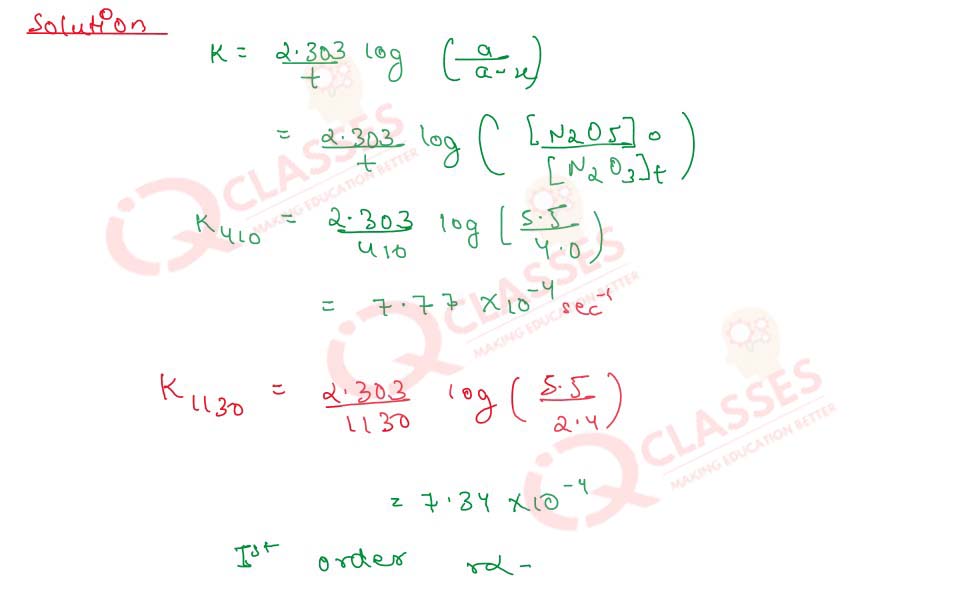 Solution
K = 2.303/t log (a/a-x)
= 2.303/t log ([N2O5]o/[N2O3]t)
K410 = 2.303/410 log [5.5/4.0)
= 7.77 × 10^-4 sec^-1
K1130 = 2.303/1130 log (5.5/2.4)
= 7.34 × 10^-4
Ist order rα-
iQ CLASSES
MAKING EDUCATION BETTER
iQ CLASSES
MAKING EDUCATION BETTER
iQ CLASSES
MAKING EDUCATION BETTER